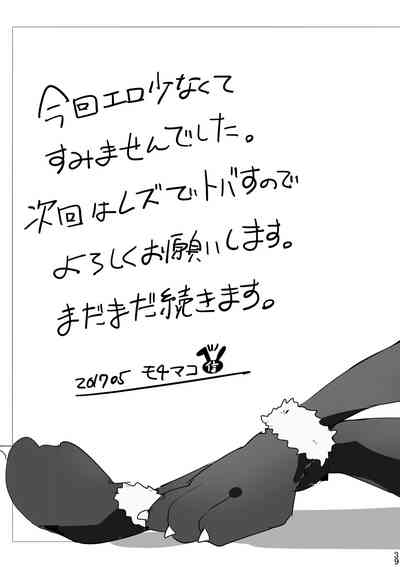 今回エロ少なくて
すみませんでした。
次回はレズでトバすので
よろしくお願いします。
まだまだ続きます。
201705 モチマコ
39